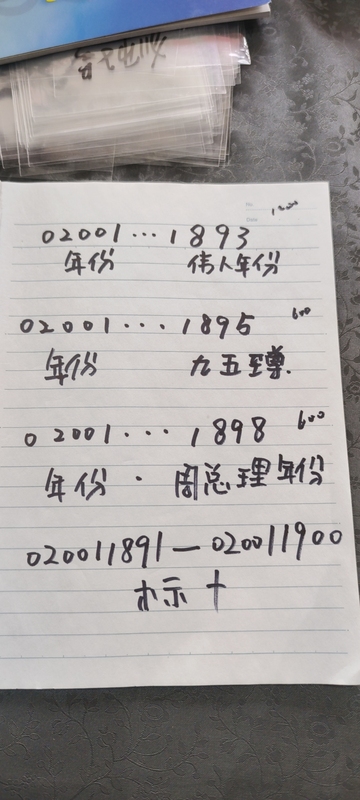 No:
Date
1200
02001...1893
年份 伟人年份
02001...1895 600
年份 九五至尊.
02001...1898 600
年份 · 周总理年份
020011891—020011900
标示十